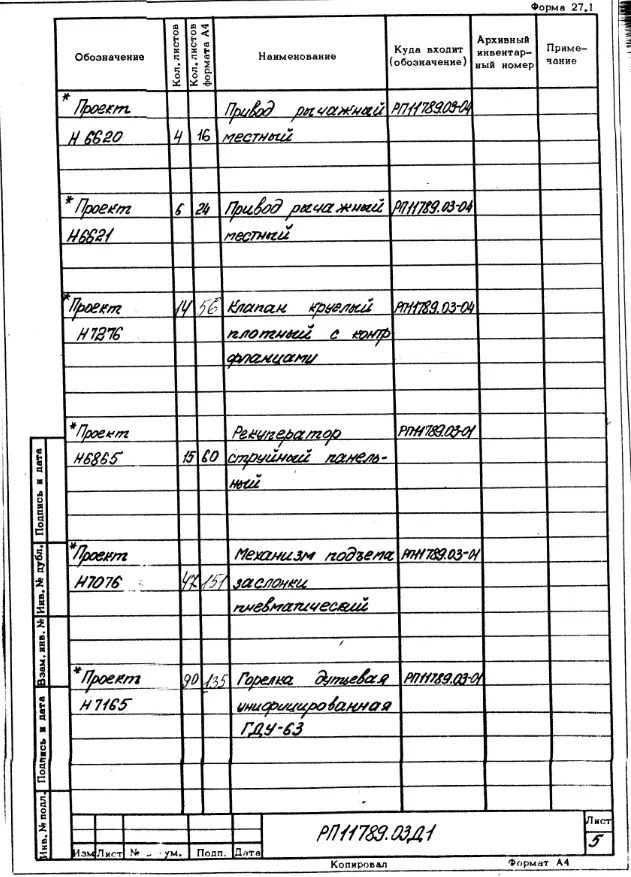 Форма 27.1
Обозначение Кол. листов Кол. листов формата А4 Наименование Куда входит (обозначение) Архивный инвентар-ный номер Приме-чание
* Проект Привод рычажный РП11789.03-04
Н 6620 4 16 местный
* Проект 6 24 Привод рычажный РП11789.03-04
Н6621 местный
* Проект 14 56 Клапан круглый РП11789.03-04
Н7376 плотный с контр
фланцами
* Проект Рекуператор РП11789.03-01
Н6865 15 60 струйный панель-
ный
* Проект Механизм подъема РП11789.03-01
Н7076 47 151 заслонки
пневматический
* Проект 90 135 Горелка дутьевая РП11789.03-01
Н 7165 унифицированная
ГДУ-63
Инв. № подл. Подпись и дата Взам. инв. № Инв. № дубл. Подпись и дата
РП11789.03Д1
Лист
5
Изм Лист № ум. Подп. Дата
Копировал Формат А4